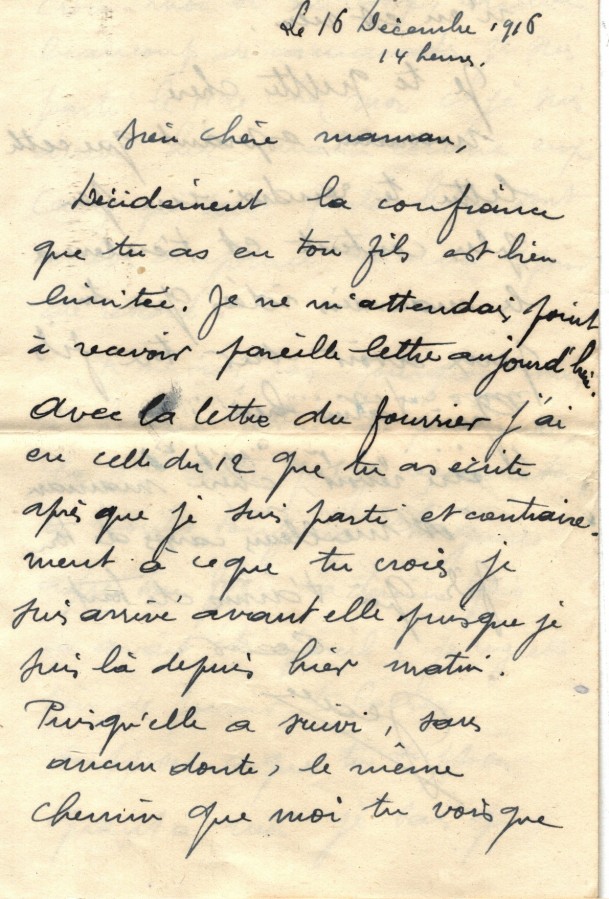 Le 16 Décembre 1916
14 heures.
Bien chère maman,
Décidement la confiance
que tu as en ton fils est bien
limitée. Je ne m'attendais point
à recevoir pareille lettre aujourd'hui.
Avec la lettre du fourrier j'ai
eu celle du 12 que tu as écrite
après que je suis parti et contraire-
ment à ce que tu crois je
suis arrivé avant elle puisque je
suis là depuis hier matin.
Puisqu'elle a suivi, sans
aucun doute, le même
chemin que moi tu vois que